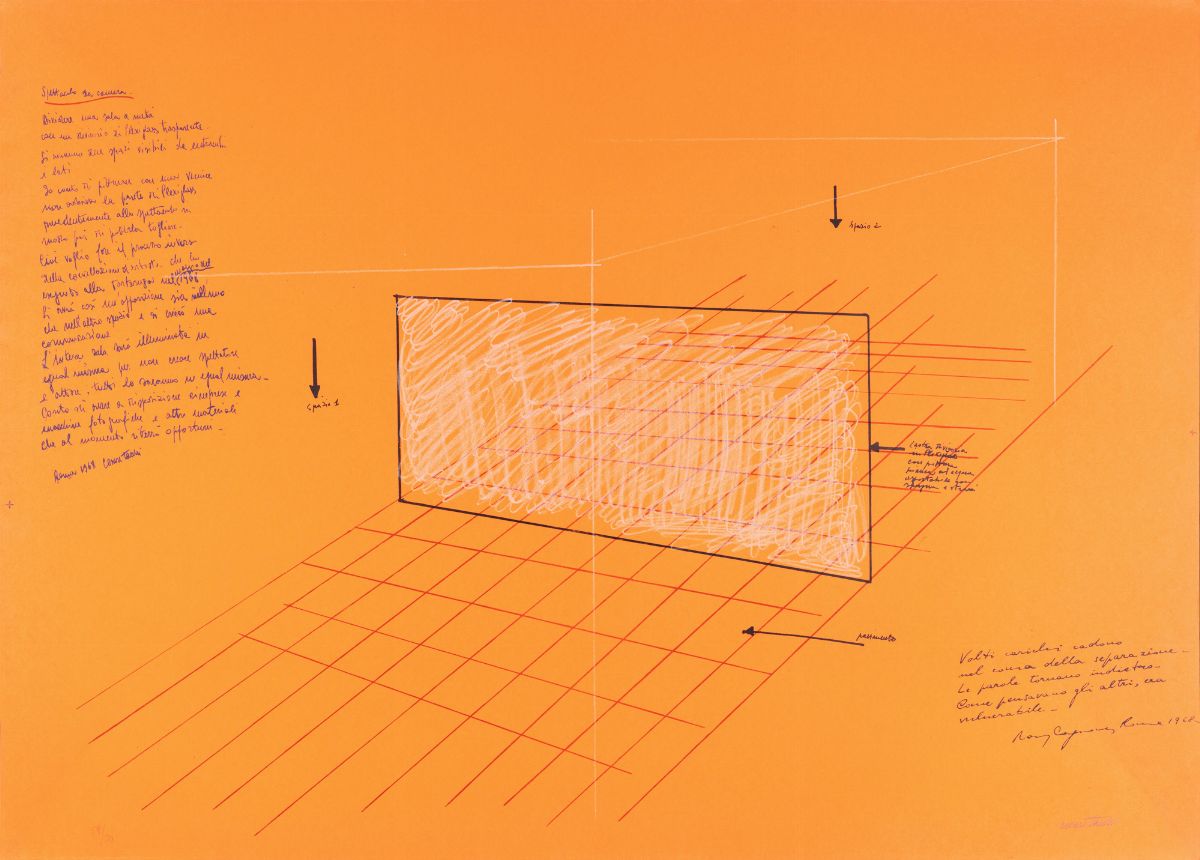 Spettacolo da camera
Dividere una sala a metà
con un divisorio di Plexiglass trasparente.
Si avranno due spazi visibili da entrambi
i lati
Io conto di pitturare con una vernice
la parete di Plexiglass
precedentemente allo spettacolo in
modo poi di poterla togliere.
Cioè voglio fare il processo inverso
della cancellazione che ho
eseguito alla Tartaruga nel
1968
Si avrà così un'opposizione sia nell'uno
che nell'altro spazio e si creerà una
comunicazione
L'intera sala sarà illuminata in
egual misura per non creare spettatore
e attore, tutti lo saranno in egual misura.
Conto di avere a disposizione cineprese e
macchine fotografiche e altri materiali
che al momento riterrò opportuni.
Roma 1968 Cesare Tacchi
Spazio 2
Spazio 1
Lastra divisoria
in Plexiglass
con pittura
bianca ad acqua
asportabile con
spugna e stracci
pavimento
Volti cadono
nel corso della separazione.
Le parole tornano indietro.
Come pensavano gli altri, era
vulnerabile.
Roma 1968